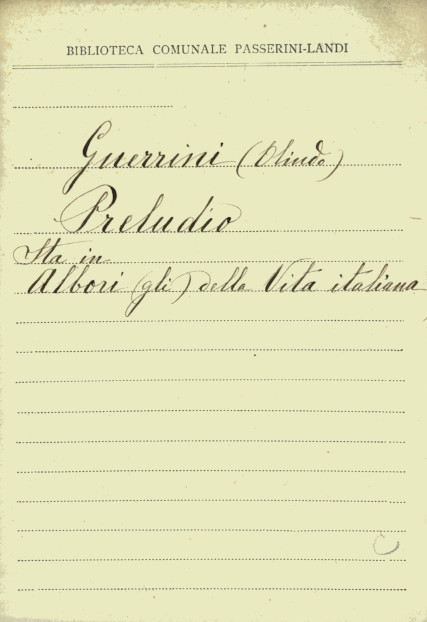 BIBLIOTECA COMUNALE PASSERINI-LANDI
Guerrini (Olindo)
Preludio
Sta in
Albori (gli) della Vita italiana